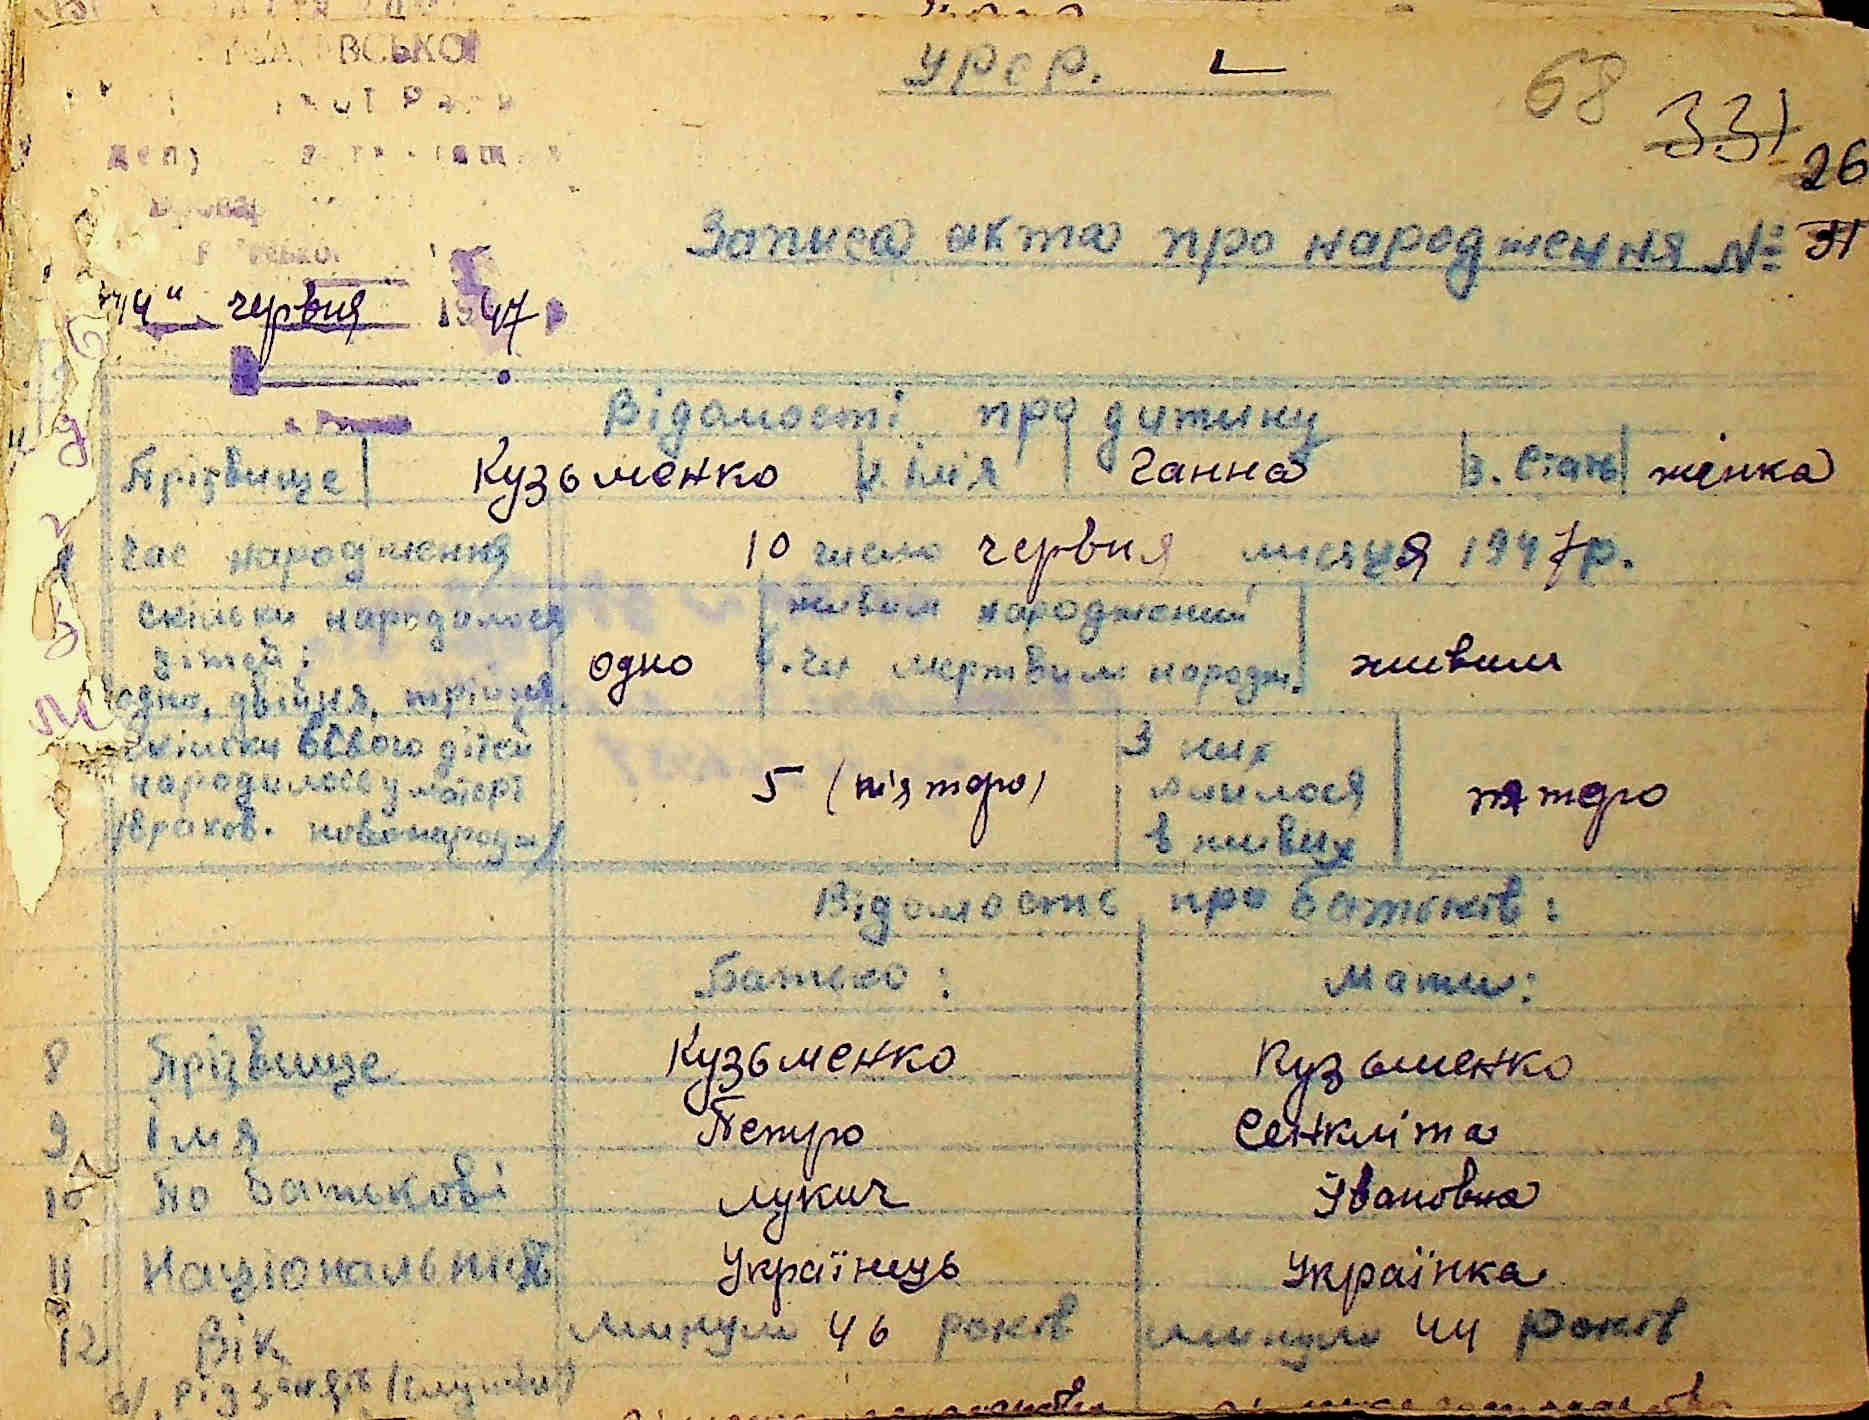 УРСР.
68
331
26
31
Записа акта про народження №
14" червня 1947 р
Відомості про дитину
Прізвище Кузьменко 2. Імя Ганна 3. Стать жінка
Час народження 10 число червня місяця 1947 р.
Скільки народилося дітей: одно, двійня, трійня. одно живим народжений чи мертвим народж. живим
Скільки всього дітей народилося у матері (враков. новонародж) 5 (пʼятеро) З них лишилося в живих пятеро
Відомость про батьків:
Батько: Мати:
8 Прізвище Кузьменко Кузьменко
9 Імя Петро Сенкліта
10 По батькові Лукич Івановна
11 Національність Українець Українка
12 Вік минуло 46 років минуло 44 років